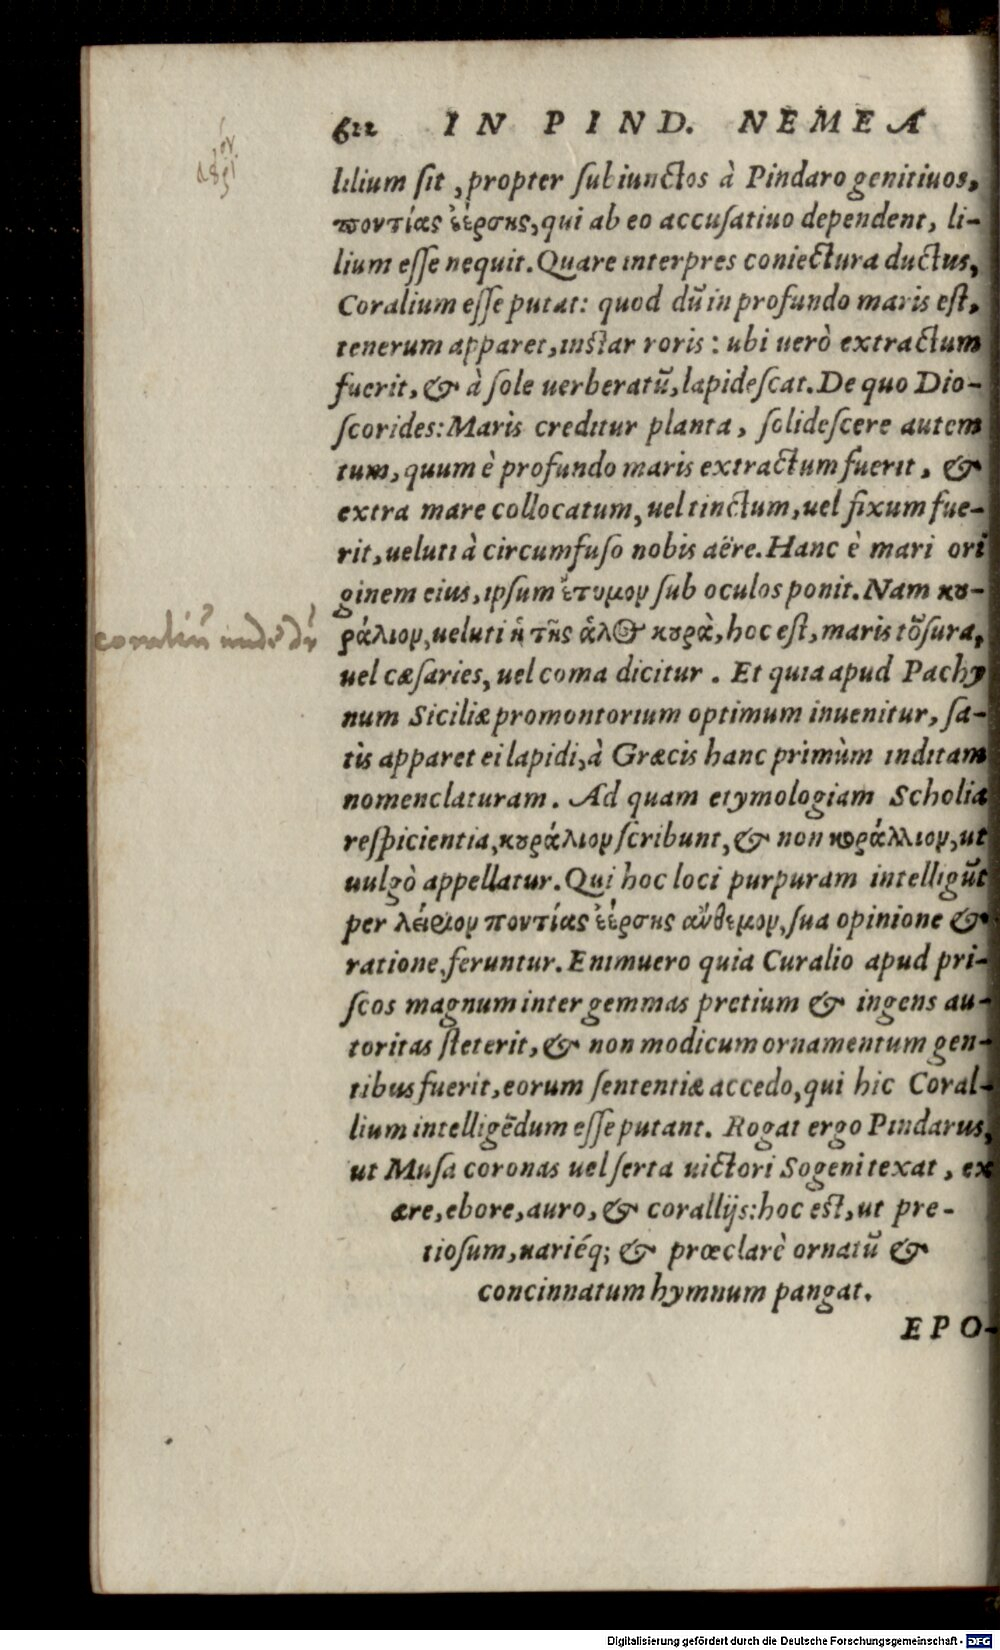 612 IN PIND. NEMEA
lilium ſit, propter ſubiunctos à Pindaro genitiuos,
ποντίας ἐέρσης, qui ab eo accuſatiuo dependent, li-
lium eſſe nequit. Quare interpres coniectura ductus,
Coralium eſſe putat: quod dũ in profundo maris eſt,
tenerum apparet, inſtar roris: ubi uerò extractum
fuerit, & à ſole uerberatũ, lapideſcat. De quo Dio-
ſcorides: Maris creditur planta, ſolideſcere autem
tum, quum è profundo maris extractum fuerit, &
extra mare collocatum, uel tinctum, uel fixum fue-
rit, ueluti à circumfuſo nobis aëre. Hanc è mari ori
ginem eius, ipſum ἔτυμον ſub oculos ponit. Nam κου-
ράλιον, ueluti ἡ τῆς ἁλὸς κουρὰ, hoc eſt, maris tõſura,
coraliũ unde dr̃
uel cæſaries, uel coma dicitur. Et quia apud Pachy
num Siciliæ promontorium optimum inuenitur, ſa-
tis apparet ei lapidi, à Græcis hanc primùm inditam
nomenclaturam. Ad quam etymologiam Scholia
reſpicientia, κουράλιον ſcribunt, & non κοράλλιον, ut
uulgò appellatur. Qui hoc loci purpuram intelligũt
per λείριον ποντίας ἐέρσης ἄνθεμον, ſua opinione &
ratione feruntur. Enimuero quia Curalio apud pri-
ſcos magnum inter gemmas pretium & ingens au-
toritas ſteterit, & non modicum ornamentum gen-
tibus fuerit, eorum ſententiæ accedo, qui hic Coral-
lium intelligẽdum eſſe putant. Rogat ergo Pindarus,
ut Muſa coronas uel ſerta uictori Sogeni texat, ex
ære, ebore, auro, & corallijs: hoc eſt, ut pre-
tioſum, uariéq; & præclarè ornatũ &
concinnatum hymnum pangat.
EPO-
Digitalisierung gefördert durch die Deutsche Forschungsgemeinschaft - DFG